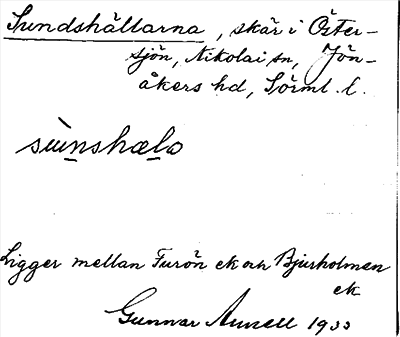 Sundshällarna, skär i Öster-
sjön, Nikolai sn, Jön-
åkers hd, Sörml. l.
sùnshælɒ
Ligger mellan Furön ek och Bjurholmen
ek
Gunnar 1933